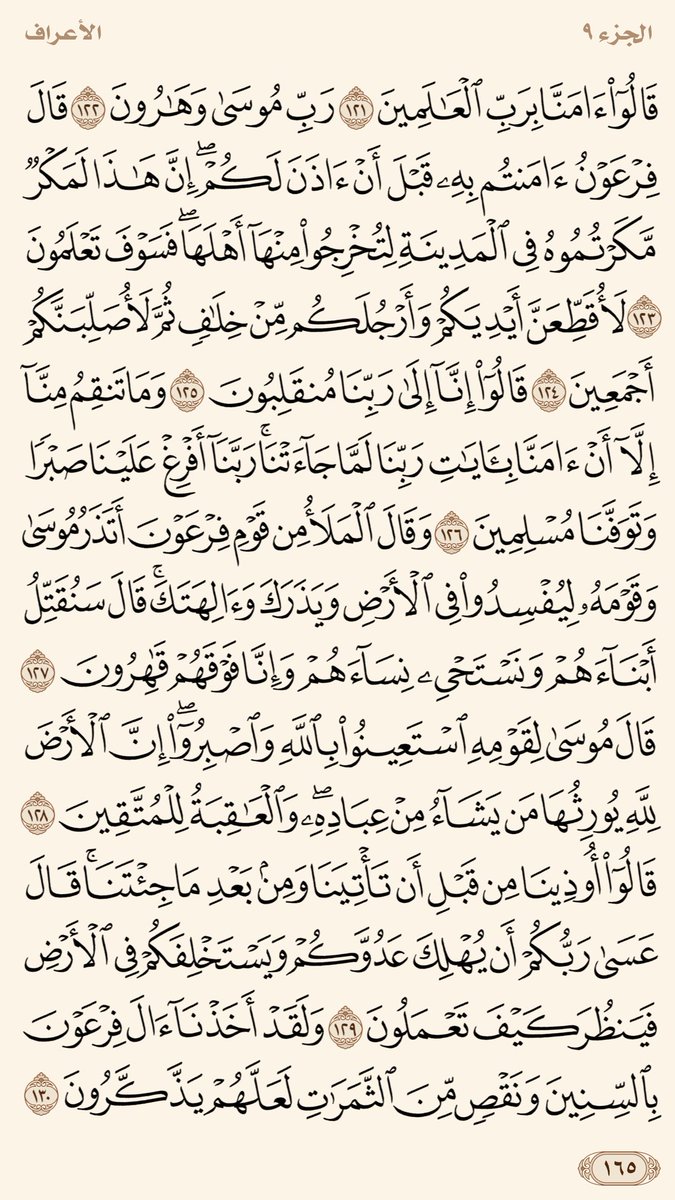 الجزء ٩ الأعراف
قَالُوٓا۟ ءَامَنَّا بِرَبِّ ٱلْعَٰلَمِينَ ١٢١ رَبِّ مُوسَىٰ وَهَٰرُونَ ١٢٢ قَالَ
فِرْعَوْنُ ءَامَنتُم بِهِۦ قَبْلَ أَنْ ءَاذَنَ لَكُمْۖ إِنَّ هَٰذَا لَمَكْرٌ
مَّكَرْتُمُوهُ فِى ٱلْمَدِينَةِ لِتُخْرِجُوا۟ مِنْهَآ أَهْلَهَاۖ فَسَوْفَ تَعْلَمُونَ
١٢٣ لَأُقَطِّعَنَّ أَيْدِيَكُمْ وَأَرْجُلَكُم مِّنْ خِلَٰفٍ ثُمَّ لَأُصَلِّبَنَّكُمْ
أَجْمَعِينَ ١٢٤ قَالُوٓا۟ إِنَّآ إِلَىٰ رَبِّنَا مُنقَلِبُونَ ١٢٥ وَمَا تَنقِمُ مِنَّآ
إِلَّآ أَنْ ءَامَنَّا بِـَٔايَٰتِ رَبِّنَا لَمَّا جَآءَتْنَاۚ رَبَّنَآ أَفْرِغْ عَلَيْنَا صَبْرًا
وَتَوَفَّنَا مُسْلِمِينَ ١٢٦ وَقَالَ ٱلْمَلَأُ مِن قَوْمِ فِرْعَوْنَ أَتَذَرُ مُوسَىٰ
وَقَوْمَهُۥ لِيُفْسِدُوا۟ فِى ٱلْأَرْضِ وَيَذَرَكَ وَءَالِهَتَكَۚ قَالَ سَنُقَتِّلُ
أَبْنَآءَهُمْ وَنَسْتَحْىِۦ نِسَآءَهُمْ وَإِنَّا فَوْقَهُمْ قَٰهِرُونَ ١٢٧
قَالَ مُوسَىٰ لِقَوْمِهِ ٱسْتَعِينُوا۟ بِٱللَّهِ وَٱصْبِرُوٓا۟ۖ إِنَّ ٱلْأَرْضَ
لِلَّهِ يُورِثُهَا مَن يَشَآءُ مِنْ عِبَادِهِۦۖ وَٱلْعَٰقِبَةُ لِلْمُتَّقِينَ ١٢٨
قَالُوٓا۟ أُوذِينَا مِن قَبْلِ أَن تَأْتِيَنَا وَمِنۢ بَعْدِ مَا جِئْتَنَاۚ قَالَ
عَسَىٰ رَبُّكُمْ أَن يُهْلِكَ عَدُوَّكُمْ وَيَسْتَخْلِفَكُمْ فِى ٱلْأَرْضِ
فَيَنظُرَ كَيْفَ تَعْمَلُونَ ١٢٩ وَلَقَدْ أَخَذْنَآ ءَالَ فِرْعَوْنَ
بِٱلسِّنِينَ وَنَقْصٍ مِّنَ ٱلثَّمَرَٰتِ لَعَلَّهُمْ يَذَّكَّرُونَ ١٣٠
١٦٥